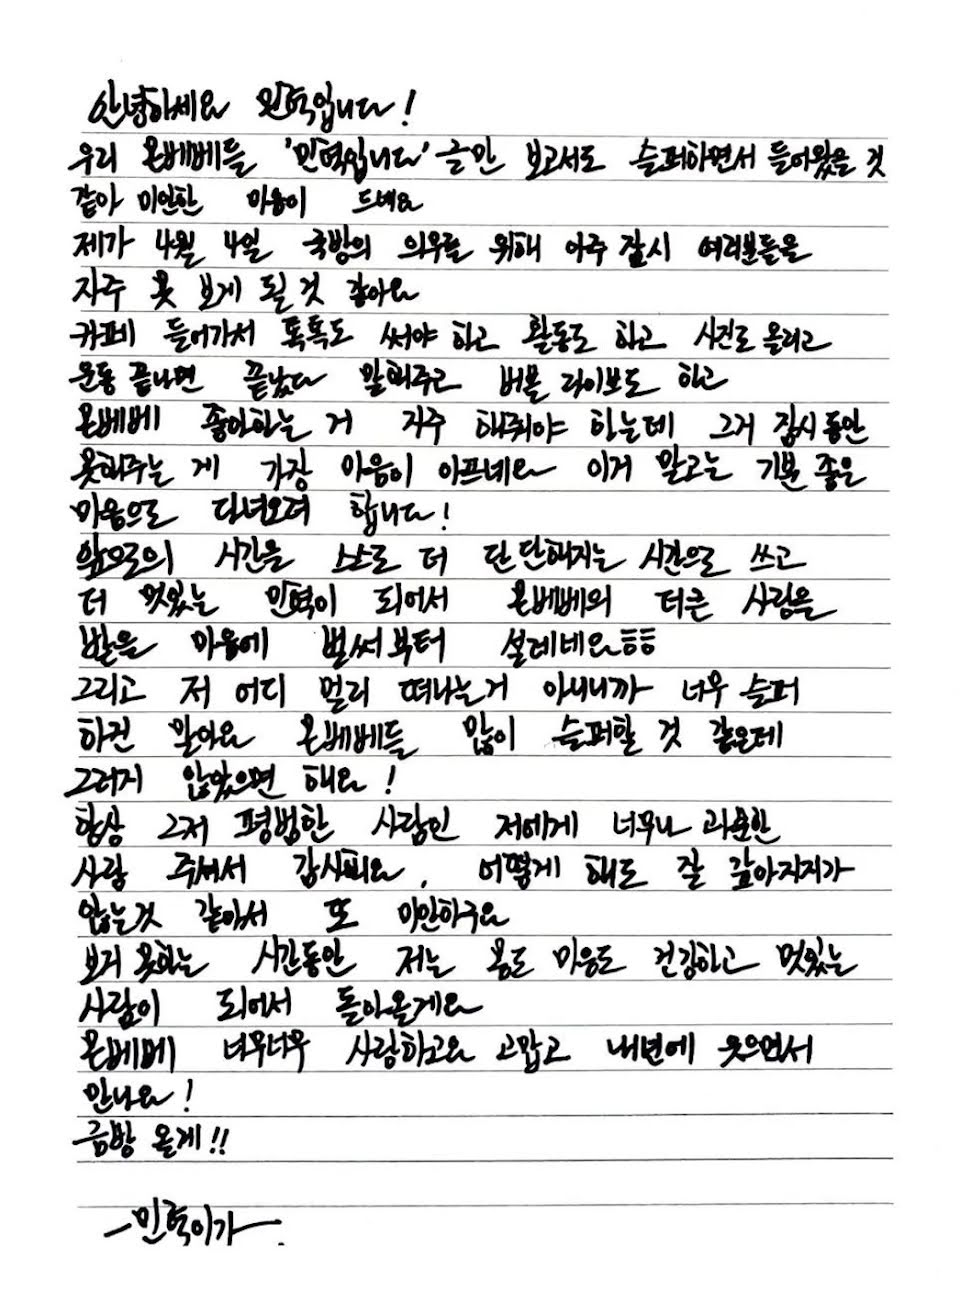 안녕하세요 민혁입니다!
우리 몬베베들 '민혁입니다' 글만 보고서도 슬퍼하면서 들어왔을 것
같아 미안한 마음이 드네요
제가 4월 4일 국방의 의무를 위해 아주 잠시 여러분들을
자주 못 보게 될 것 같아요
카페 들어가서 톡톡도 써야 하고 활동도 하고 사진도 올리고
운동 끝나면 끝났다 말해주고 버블 라이브도 하고
몬베베 좋아하는 거 자주 해줘야 하는데 그거 잠시 동안
못해주는 게 가장 마음이 아프네요 이거 말고는 기분 좋은
마음으로 다녀오려 합니다!
앞으로의 시간을 스스로 더 단단해지는 시간으로 쓰고
더 멋있는 민혁이 되어서 몬베베의 더큰 사랑을
받을 마음에 벌써부터 설레네요ㅎㅎ
그리고 저 어디 멀리 떠나는거 아니니까 너무 슬퍼
하진 말아요 몬베베들 많이 슬퍼할 것 같은데
그러지 않았으면 해요!
항상 그저 평범한 사람인 저에게 너무나 과분한
사랑 주셔서 감사해요, 어떻게 해도 잘 갚아지지가
않는것 같아서 또 미안하구요
보지 못하는 시간동안 저는 몸도 마음도 건강하고 멋있는
사람이 되어서 돌아올게요
몬베베 너무너무 사랑하고요 고맙고 내년에 웃으면서
만나요!
금방 올게!!
-민혁이가-